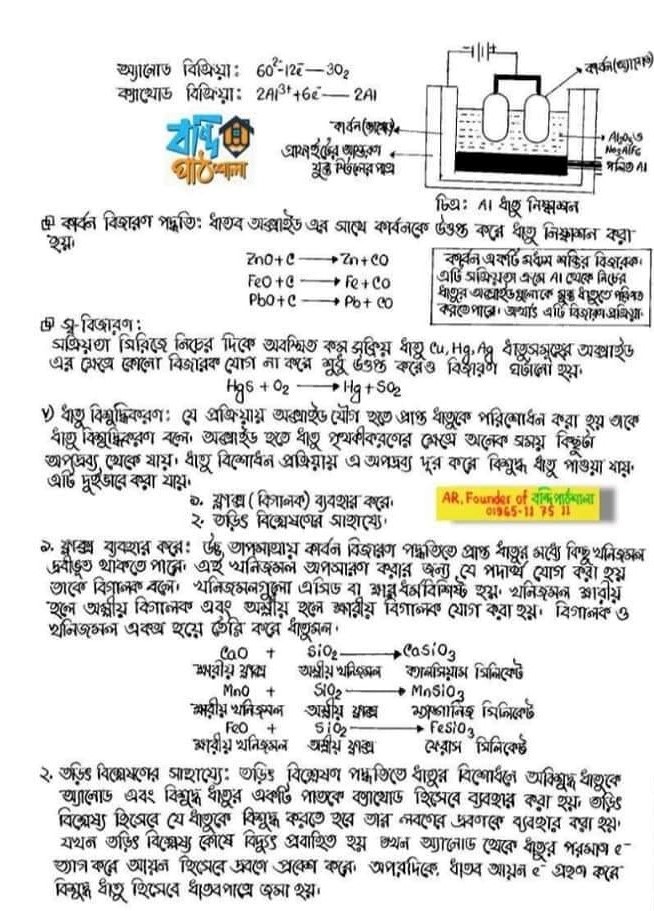 অ্যানোড বিক্রিয়া: 6O²⁻-12e̅ — 3O₂
ক্যাথোড বিক্রিয়া: 2Al³⁺+6e̅ — 2Al
বন্দি
পাঠশালা
কার্বন(অ্যানোড)
কার্বন(ক্যাথোড)
গ্রাফাইটের আস্তরণ
যুক্ত স্টিলের পাত্র
Al₂O₃ ও
Na₃AlF₆
গলিত Al
চিত্র: Al ধাতু নিষ্কাশন
কার্বন বিজারণ পদ্ধতি: ধাতব অক্সাইড এর সাথে কার্বনকে উত্তপ্ত করে ধাতু নিষ্কাশন করা
হয়।
ZnO+C → Zn+CO
FeO+C → Fe+CO
PbO+C → Pb+CO
কার্বন একটি মধ্যম শক্তির বিজারক।
এটি সক্রিয়তা ক্রমে Al থেকে নিচের
ধাতুর অক্সাইডগুলোকে মুক্ত ধাতুতে পরিণত
করতে পারে। অর্থাৎ এটি বিজারণ প্রক্রিয়া।
স্ব-বিজারণ:
সক্রিয়তা সিরিজে নিচের দিকে অবস্থিত কম সক্রিয় ধাতু Cu, Hg, Ag ধাতুসমূহের অক্সাইড
এর ক্ষেত্রে কোনো বিজারক যোগ না করে শুধু উত্তপ্ত করেও বিজারণ ঘটানো হয়।
HgS + O₂ → Hg + SO₂
৮) ধাতু বিশুদ্ধিকরণ: যে প্রক্রিয়ায় অক্সাইড যৌগ হতে প্রাপ্ত ধাতুকে পরিশোধন করা হয় তাকে
ধাতু বিশুদ্ধিকরণ বলে। অক্সাইড হতে ধাতু পৃথকীকরণের ক্ষেত্রে অনেক সময় কিছুটা
অপদ্রব্য থেকে যায়। ধাতু বিশোধন প্রক্রিয়ায় এ অপদ্রব্য দূর করে বিশুদ্ধ ধাতু পাওয়া যায়।
এটি দুইভাবে করা যায়।
১. ফ্লাক্স (বিগালক) ব্যবহার করে।
২. তড়িৎ বিশ্লেষণের সাহায্যে।
AR, Founder of বন্দি পাঠশালা
01965-11 75 11
১. ফ্লাক্স ব্যবহার করে: উচ্চ তাপমাত্রায় কার্বন বিজারণ পদ্ধতিতে প্রাপ্ত ধাতুর মধ্যে কিছু খনিজমল
দ্রবীভূত থাকতে পারে। এই খনিজমল অপসারণ করার জন্য যে পদার্থ যোগ করা হয়
তাকে বিগালক বলে। খনিজমলগুলো এসিড বা ক্ষার ধর্মবিশিষ্ট হয়। খনিজমল ক্ষারীয়
হলে অম্লীয় বিগালক এবং অম্লীয় হলে ক্ষারীয় বিগালক যোগ করা হয়। বিগালক ও
খনিজমল একত্র হয়ে তৈরি করে ধাতুমল।
CaO + SiO₂ → CaSiO₃
ক্ষারীয় ফ্লাক্স অম্লীয় খনিজমল ক্যালসিয়াম সিলিকেট
MnO + SiO₂ → MnSiO₃
ক্ষারীয় খনিজমল অম্লীয় ফ্লাক্স ম্যাঙ্গানিজ সিলিকেট
FeO + SiO₂ → FeSiO₃
ক্ষারীয় খনিজমল অম্লীয় ফ্লাক্স ফেরাস সিলিকেট
২. তড়িৎ বিশ্লেষণের সাহায্যে: তড়িৎ বিশ্লেষণ পদ্ধতিতে ধাতুর বিশোধনে অবিশুদ্ধ ধাতুকে
অ্যানোড এবং বিশুদ্ধ ধাতুর একটি পাতকে ক্যাথোড হিসেবে ব্যবহার করা হয়। তড়িৎ
বিশ্লেষ্য হিসেবে যে ধাতুকে বিশুদ্ধ করতে হবে তার লবণের দ্রবণকে ব্যবহার করা হয়।
যখন তড়িৎ বিশ্লেষ্য কোষে বিদ্যুৎ প্রবাহিত হয় তখন অ্যানোড থেকে ধাতুর পরমাণু e⁻
ত্যাগ করে আয়ন হিসেবে দ্রবণে প্রবেশ করে। অপরদিকে, ধাতব আয়ন e⁻ গ্রহণ করে
বিশুদ্ধ ধাতু হিসেবে ধাতবপাত্রে জমা হয়।